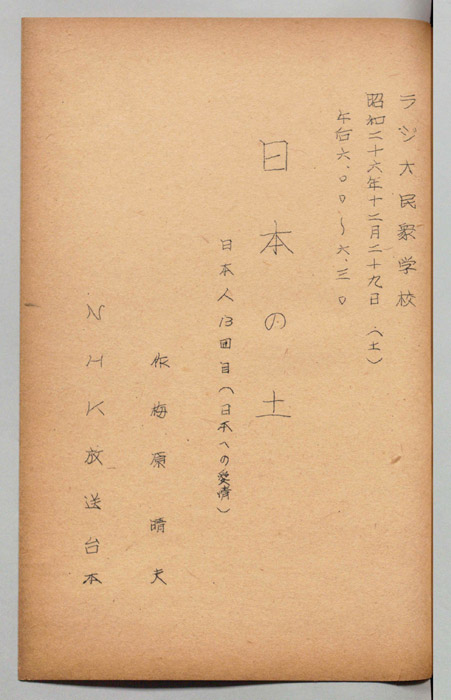 ラジオ民衆学校
昭和二十六年十二月二十九日（土）
午后六.〇〇〜六.三〇
日本の土
日本人13回目（日本への愛情）
作 梅原晴夫
NHK放送台本